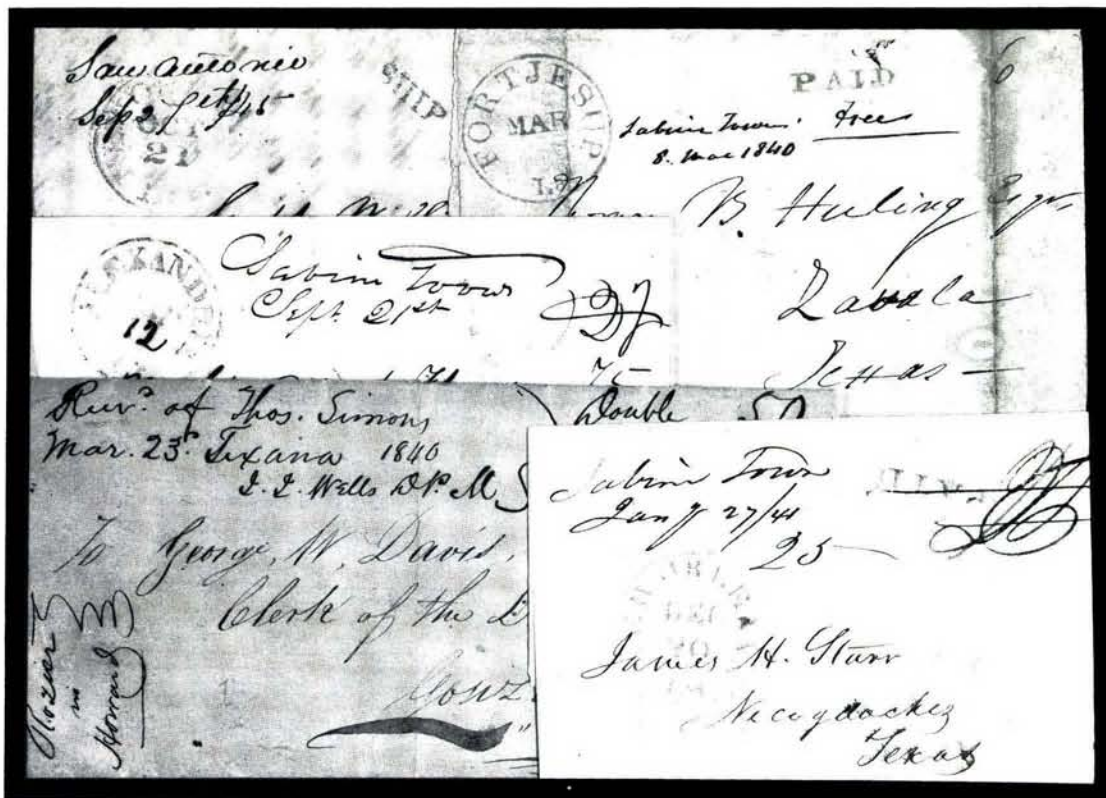 San Antonio
Sep 27th/45
21
SHIP
FORT JESUP
MAR
La
PAID
6
Sabine Town. Free
8. Mar 1840
B. Huling Esqr
Zavala
Texas
ALEXANDRI
12
Sabine Town
Sept. 21st
75
Recvd. of Thos. Simons
Mar. 23d. Texana 1840
Wells D P. M
Double 50
To George, W, Davis,
Clerk of the D
Gonz
in
Howard
Sabine Town
Jany 27/41
25
20
James H. Starr
Nacogdoches
Texas